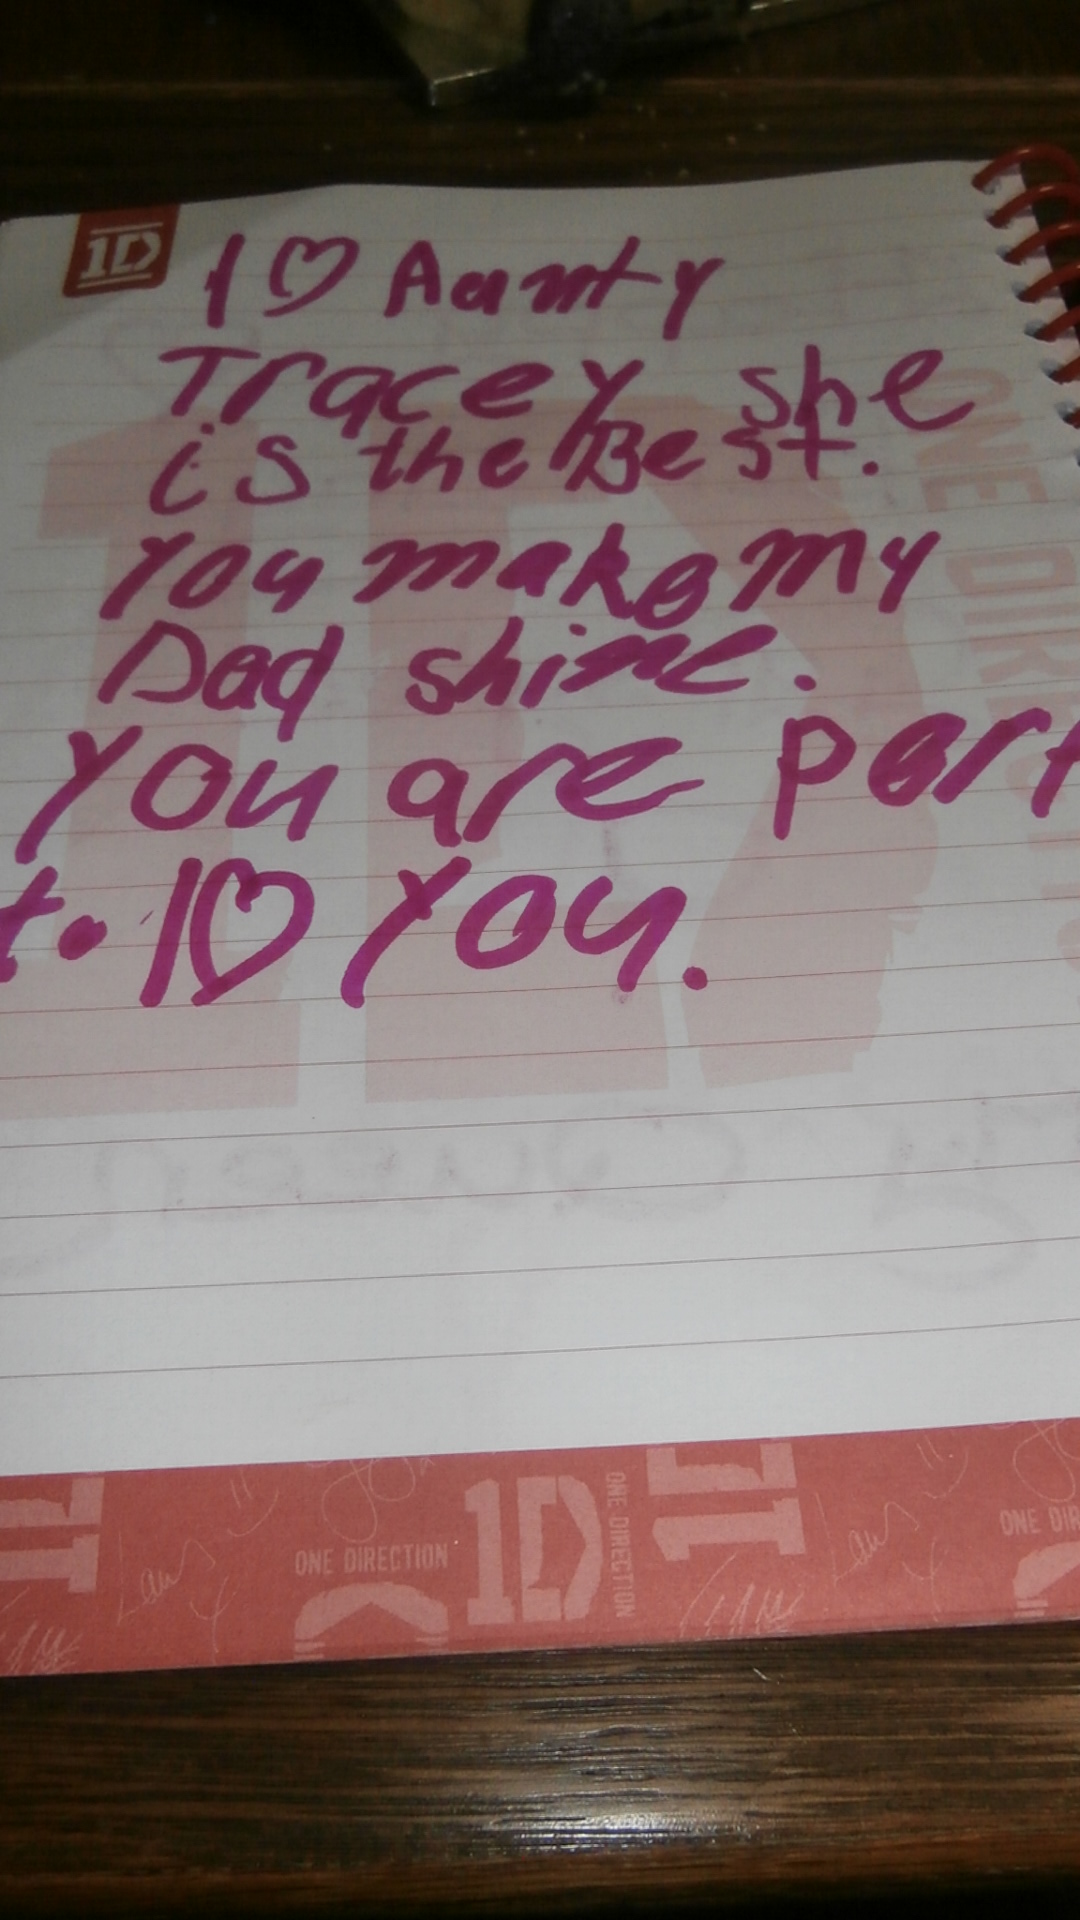 1D
I ♡ Aunty
Tracey she
is the Best.
You make my
Dad shine.
You are perf
t. I ♡ You.
ONE DIRECTIO
1D
ONE DIRECTION
1D
ONE DIRECTION
1D
ONE DIR